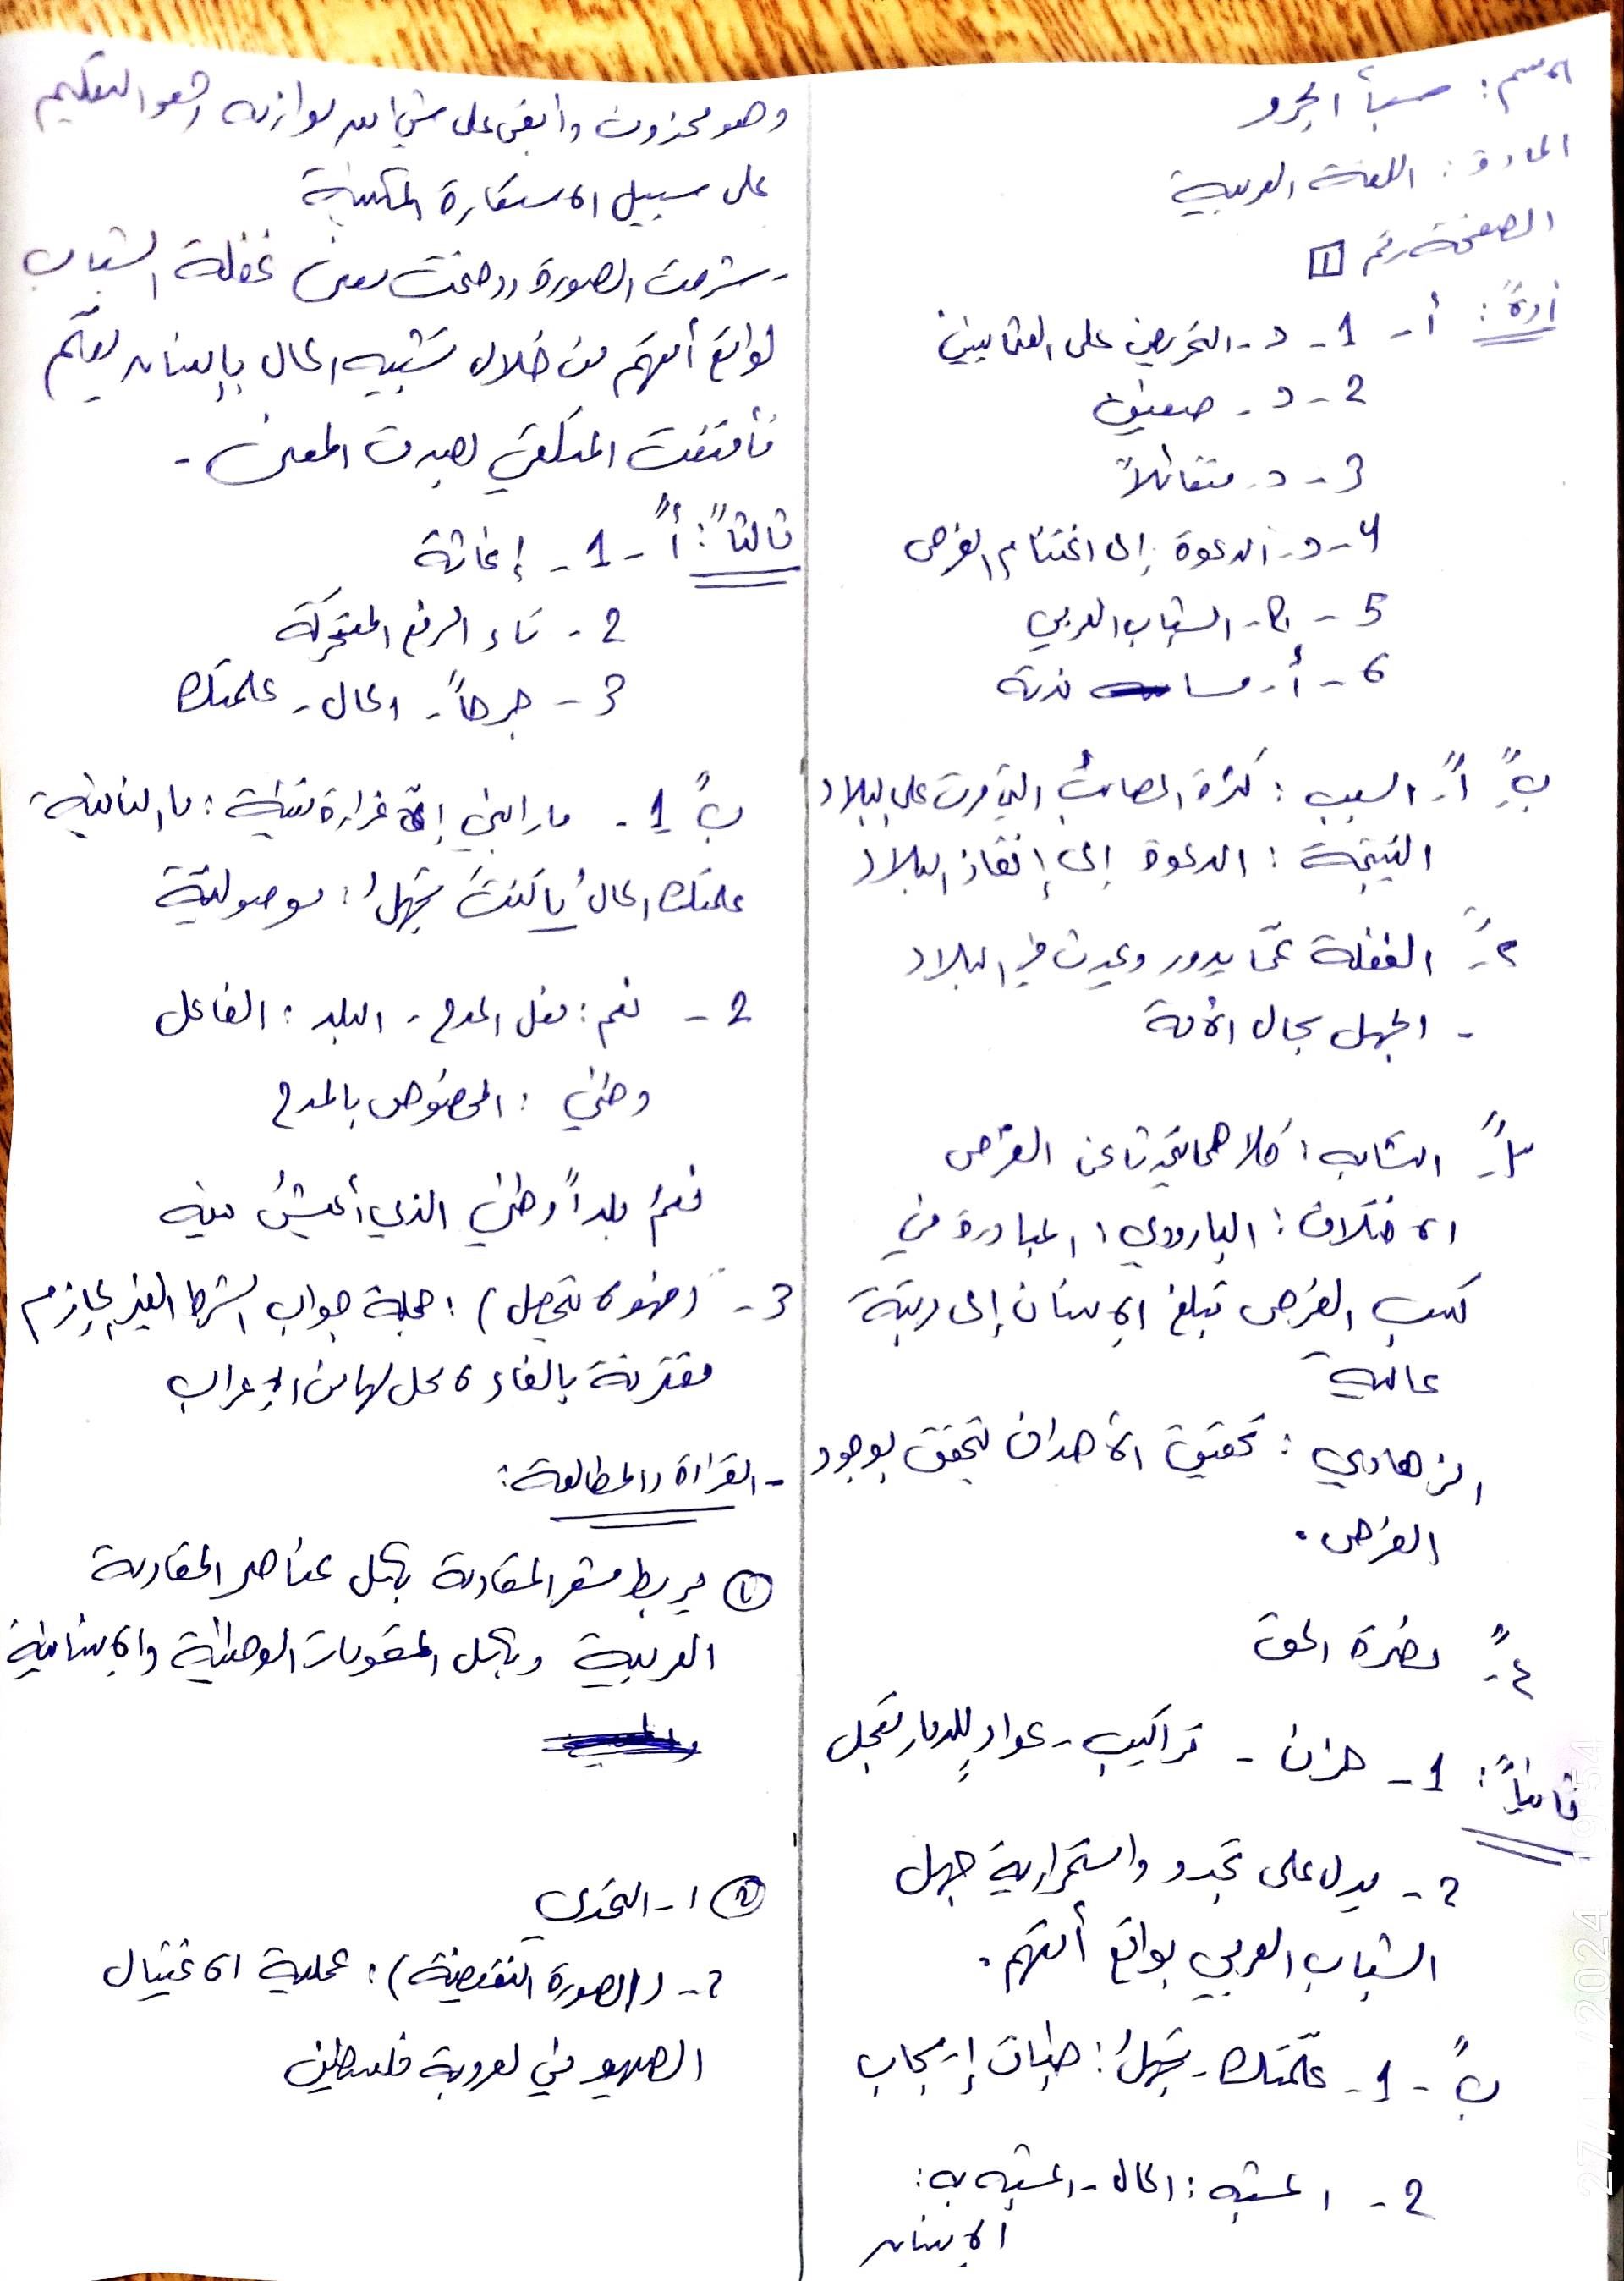 الاسم: صبأ الجرو
المادة: اللغة العربية
الصفحة رقم 1
أولاً: أ- 1- د- التحريض على العثمانيين
2- د- ضعيف
3- د- متفائلاً
4- د- الدعوة إلى اغتنام الفرص
5- ج- الشباب العربي
6- أ- مساندته
بً 1ً- السبب: كثرة المصائب التي مرت على البلاد
النتيجة: الدعوة إلى إنقاذ البلاد
2ً- الغفلة عمّا يدور ويحدث في البلاد
- الجهل بحال الأمة
3ً- التشابه: كلاهما تحدثا عن الفرص
الاختلاف: البارودي: المبادرة في
كسب الفرص تبلغ الإنسان إلى رتبة
عالية
الزهاوي: تحقيق الأهداف يتحقق بوجود
الفرص.
4ً- نصرة الحق
ثانياً: 1- حزن - تراكيب - عوادٍ للدمار تعجل
2- يدل على تجدد واستمرارية جهل
الشباب العربي بواقع أمتهم.
بً - 1- علّمتك - تجهلُ: طباق إيجاب
2- المشبه: الحال - المشبه به:
الإنسان
وهو محذوف وأبقى على شيء من لوازمه وهو التعليم
على سبيل الاستعارة المكنية
- شرحت الصورة ووضحت معنى غفلة الشباب
لواقع أمتهم من خلال تشبيه الحال بإنسان يعلّم
فأقنعت المتلقي بصدق المعنى -
ثالثاً: أً - 1- إغاثة
2- تاء الرفع المتحركة
3- جرحاً - الحال - علمتك
بً 1- ما رابني إلا غرارة فتية: ما النافية
علمتك الحالُ ما كنتَ تجهلُ: موصولية
2- نعم: فعل المدح - البلد: الفاعل
وطني: المخصوص بالمدح
نعمَ بلداً وطني الذي أعيشُ فيه
3- (فهو لا يتحصل): جملة جواب الشرط الغير جازم
مقترنة بالفاء لا محل لها من الإعراب
- القراءة والمطالعة:
1 يربط شعر المقاومة بكل عناصر المقاومة
العربية وبكل المقومات الوطنية والإنسانية
2 1- التحدي
2- (الصورة النقيضة): عملية الاغتيال
الصهيوني لعروبة فلسطين